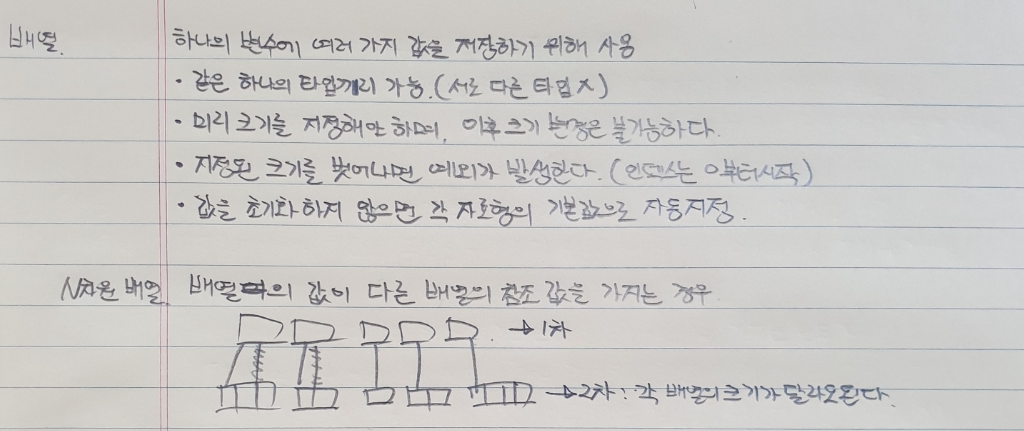 배열. 하나의 변수에 여러 가지 값을 저장하기 위해 사용
· 같은 하나의 타입끼리 가능. (서로 다른 타입 X)
· 미리 크기를 지정해야 하며, 이후 크기 변경은 불가능하다.
· 지정된 크기를 벗어나면 예외가 발생한다. (인덱스는 0부터 시작)
· 값을 초기화 하지 않으면 각 자료형의 기본값으로 자동지정.
N차원 배열 배열의 값이 다른 배열의 참조 값을 가지는 경우
→ 1차
→ 2차 : 각 배열의 크기가 달라도된다.